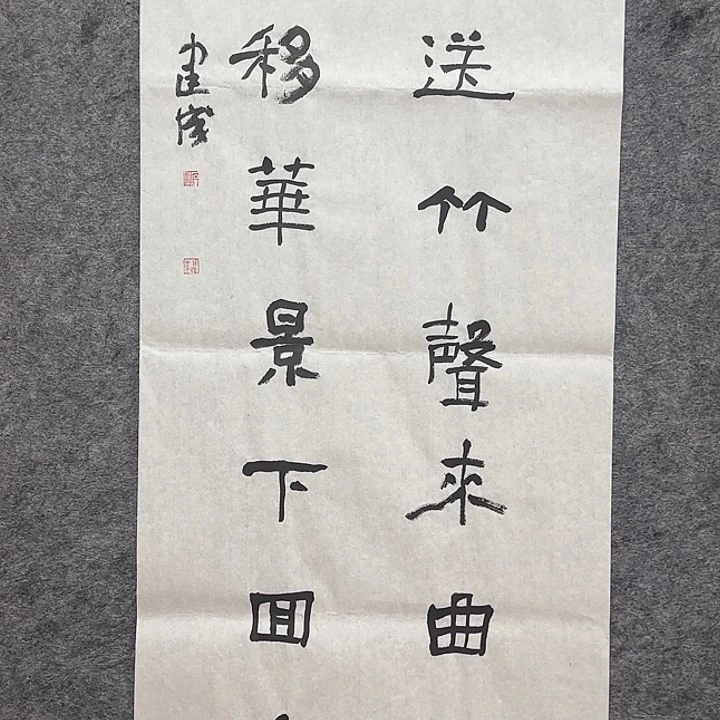 送竹聲來曲
移華景下回